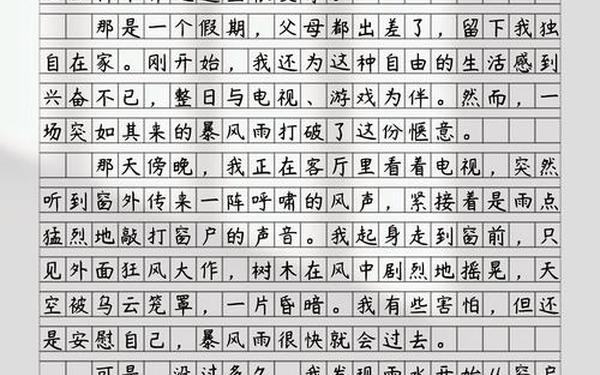 那是一个假期，父母都出差了，留下我独
自在家。刚开始，我还为这种自由的生活感到
兴奋不已，整日与电视、游戏为伴。然而，一
场突如其来的暴风雨打破了这份惬意。
那天傍晚，我正在客厅里看着电视，突然
听到窗外传来一阵呼啸的风声，紧接着是雨点
猛烈地敲打窗户的声音。我起身走到窗前，只
见外面狂风大作，树木在风中剧烈地摇晃，天
空被乌云笼罩，一片昏暗。我有些害怕，但还
是安慰自己，暴风雨很快就会过去。
可是，没过多久，我发现雨水开始从窗户